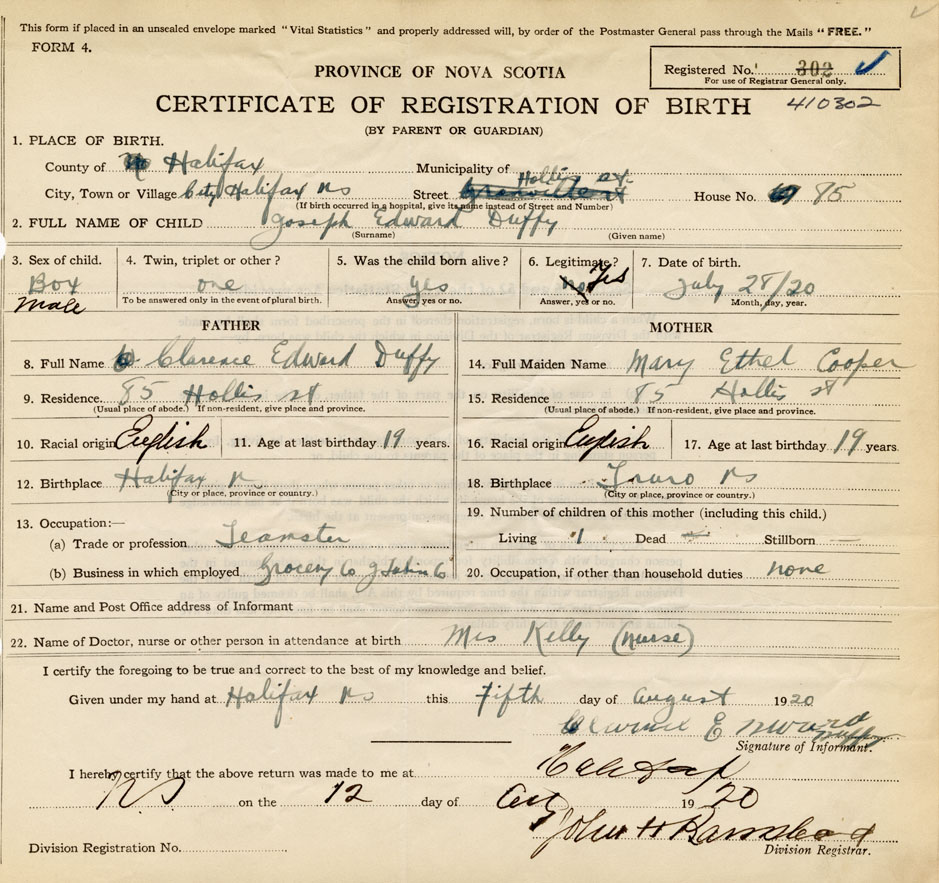 This form if placed in an unsealed envelope marked "Vital Statistics" and properly addressed will, by order of the Postmaster General pass through the Mails "FREE."
FORM 4.
PROVINCE OF NOVA SCOTIA
Registered No. 302
For use of Registrar General only.
CERTIFICATE OF REGISTRATION OF BIRTH 410302
(BY PARENT OR GUARDIAN)
1. PLACE OF BIRTH.
County of Halifax Municipality of
City, Town or Village City Halifax NS Street Hollis St House No. 85
(If birth occurred in a hospital, give its name instead of Street and Number)
2. FULL NAME OF CHILD Joseph Edward Duffy
(Surname) (Given name)
3. Sex of child. 4. Twin, triplet or other? 5. Was the child born alive? 6. Legitimate? 7. Date of birth.
Box one yes no Yes July 28/20
Male To be answered only in the event of plural birth. Answer, yes or no. Answer, yes or no. Month, day, year.
FATHER MOTHER
8. Full Name Clarence Edward Duffy 14. Full Maiden Name Mary Ethel Cooper
9. Residence. 85 Hollis st 15. Residence 85 Hollis st
(Usual place of abode.) If non-resident, give place and province. (Usual place of abode.) If non-resident, give place and province.
10. Racial origin English 11. Age at last birthday 19 years. 16. Racial origin English 17. Age at last birthday 19 years.
12. Birthplace Halifax 18. Birthplace Truro NS
(City or place, province or country.) (City or place, province or country.)
13. Occupation:— 19. Number of children of this mother (including this child.)
(a) Trade or profession Teamster Living 1 Dead — Stillborn —
(b) Business in which employed Grocery Co 20. Occupation, if other than household duties none
21. Name and Post Office address of Informant
22. Name of Doctor, nurse or other person in attendance at birth Mrs Kelly (nurse)
I certify the foregoing to be true and correct to the best of my knowledge and belief.
Given under my hand at Halifax NS this Fifth day of August 1920
Clarence E Duffy
Signature of Informant.
I hereby certify that the above return was made to me at Halifax
NS on the 12 day of 1920
John H
Division Registration No. Division Registrar.